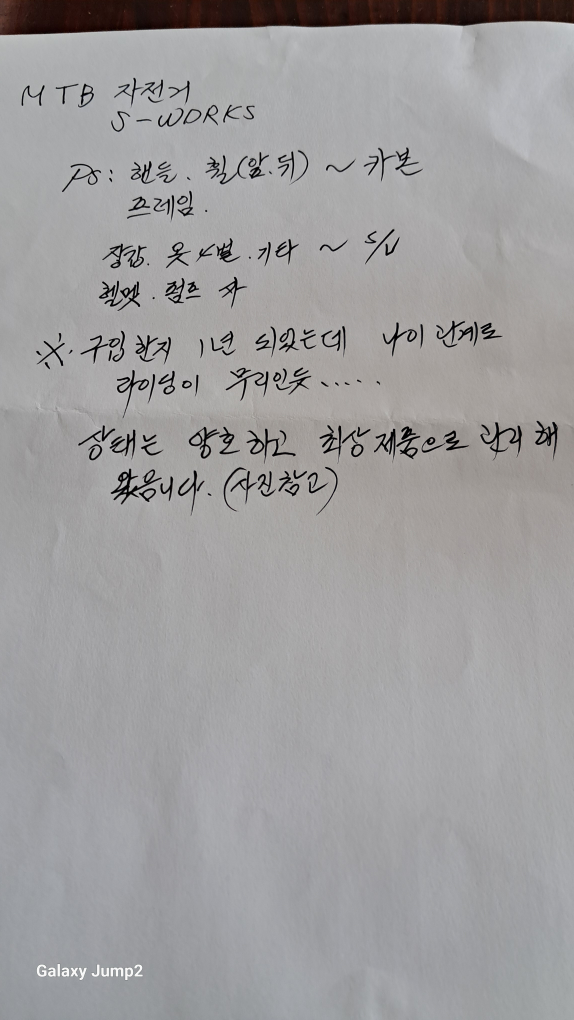 MTB 자전거
S-WORKS
PS: 핸들. 휠(앞.뒤) ~ 카본
프레임.
장갑. 옷 4벌. 기타 ~ S/V
헬멧. 펌프 外
※. 구입한지 1년 되었는데 나이 관계로
라이딩이 무리인듯.....
상태는 양호하고 최상제품으로 관리해
왔읍니다. (사진참고)
Galaxy Jump2